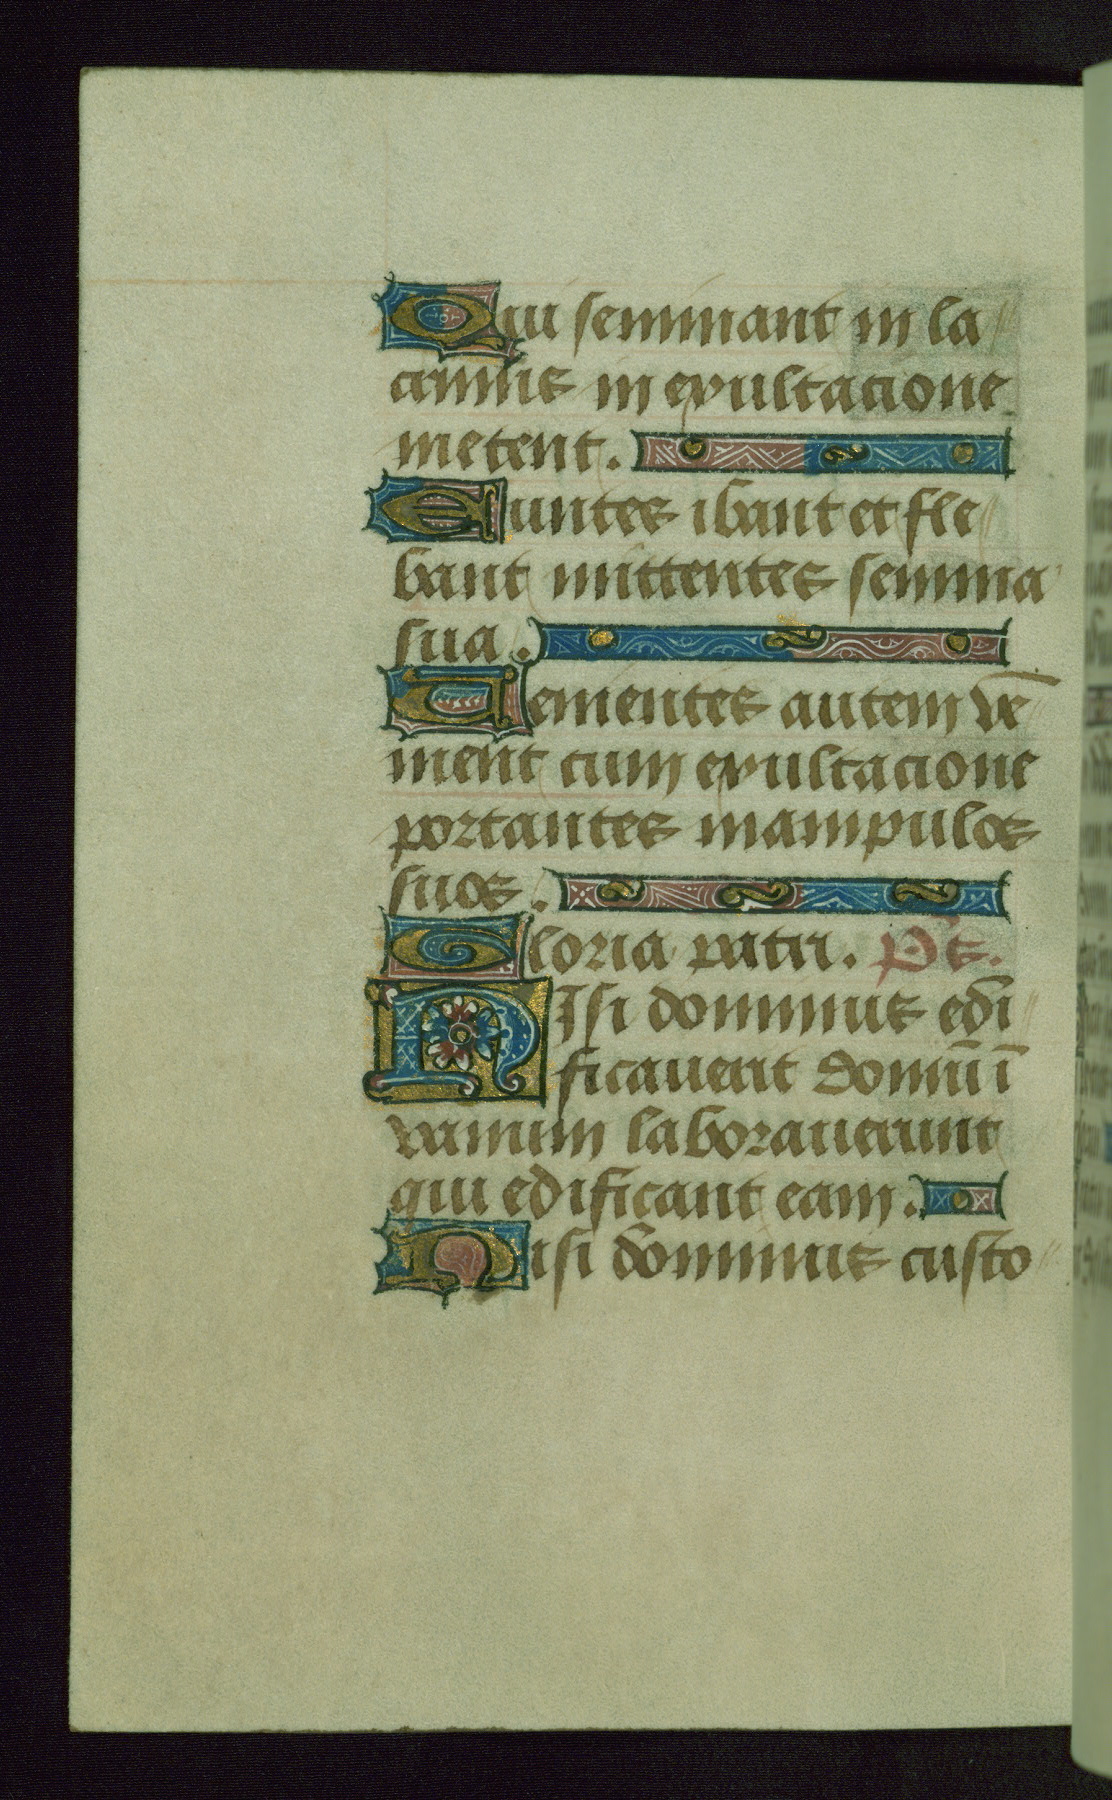 Qui seminant in la
crimis in exultacione
metent.
Euntes ibant et fle
bant mittentes semina
sua.
Uenientes autem ve
nient cum exultacione
portantes manipulos
suos.
Gloria patri. Ps.
NIsi dominus edi
ficauerit domū ī
vanum laborauerunt
qui edificant eam.
Nisi dominus custo